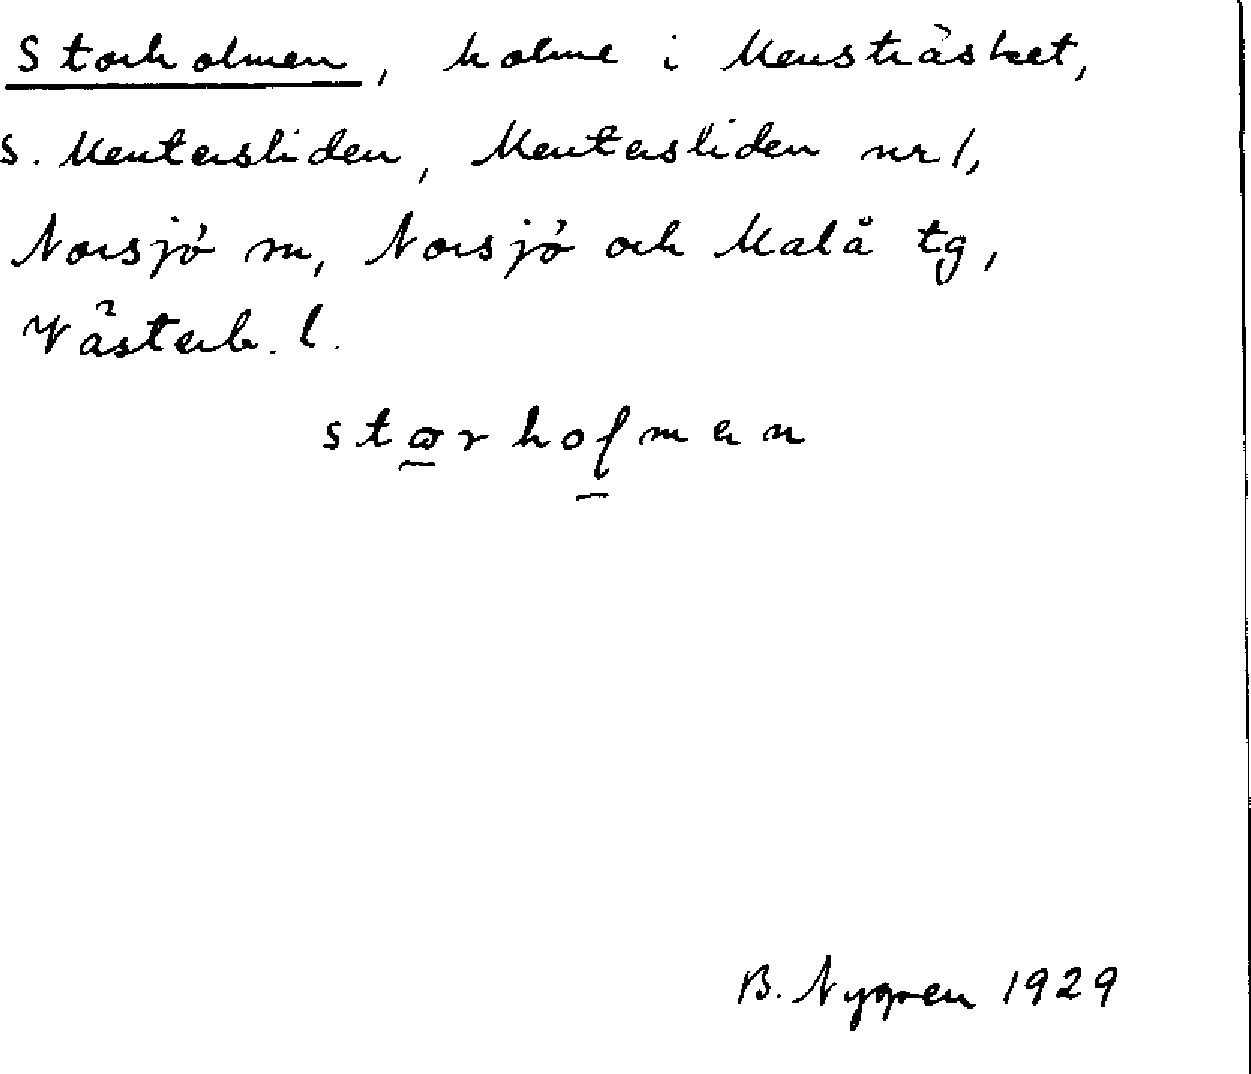 Storholmen, holme i Mensträsket,
s. Mentersliden, Mentersliden nr 1,
Norsjö sn, Norsjö och Malå tg,
Västerb. l.
B. Nygren 1929